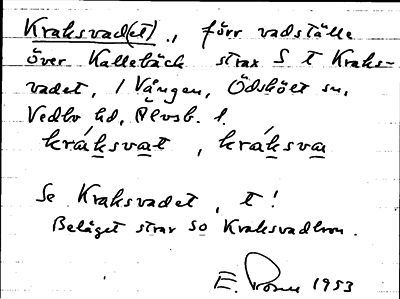 Kraksvad(et)., förr vadställe
över Kallebäck strax S t Kraks-
vadet, i Vången, Ödskölt sn,
Vedbo hd, Älvsb. l.
kráksvat, kráksva
Se Kraksvadet, t!
Beläget strax so Kraksvadbron.
E. 1953